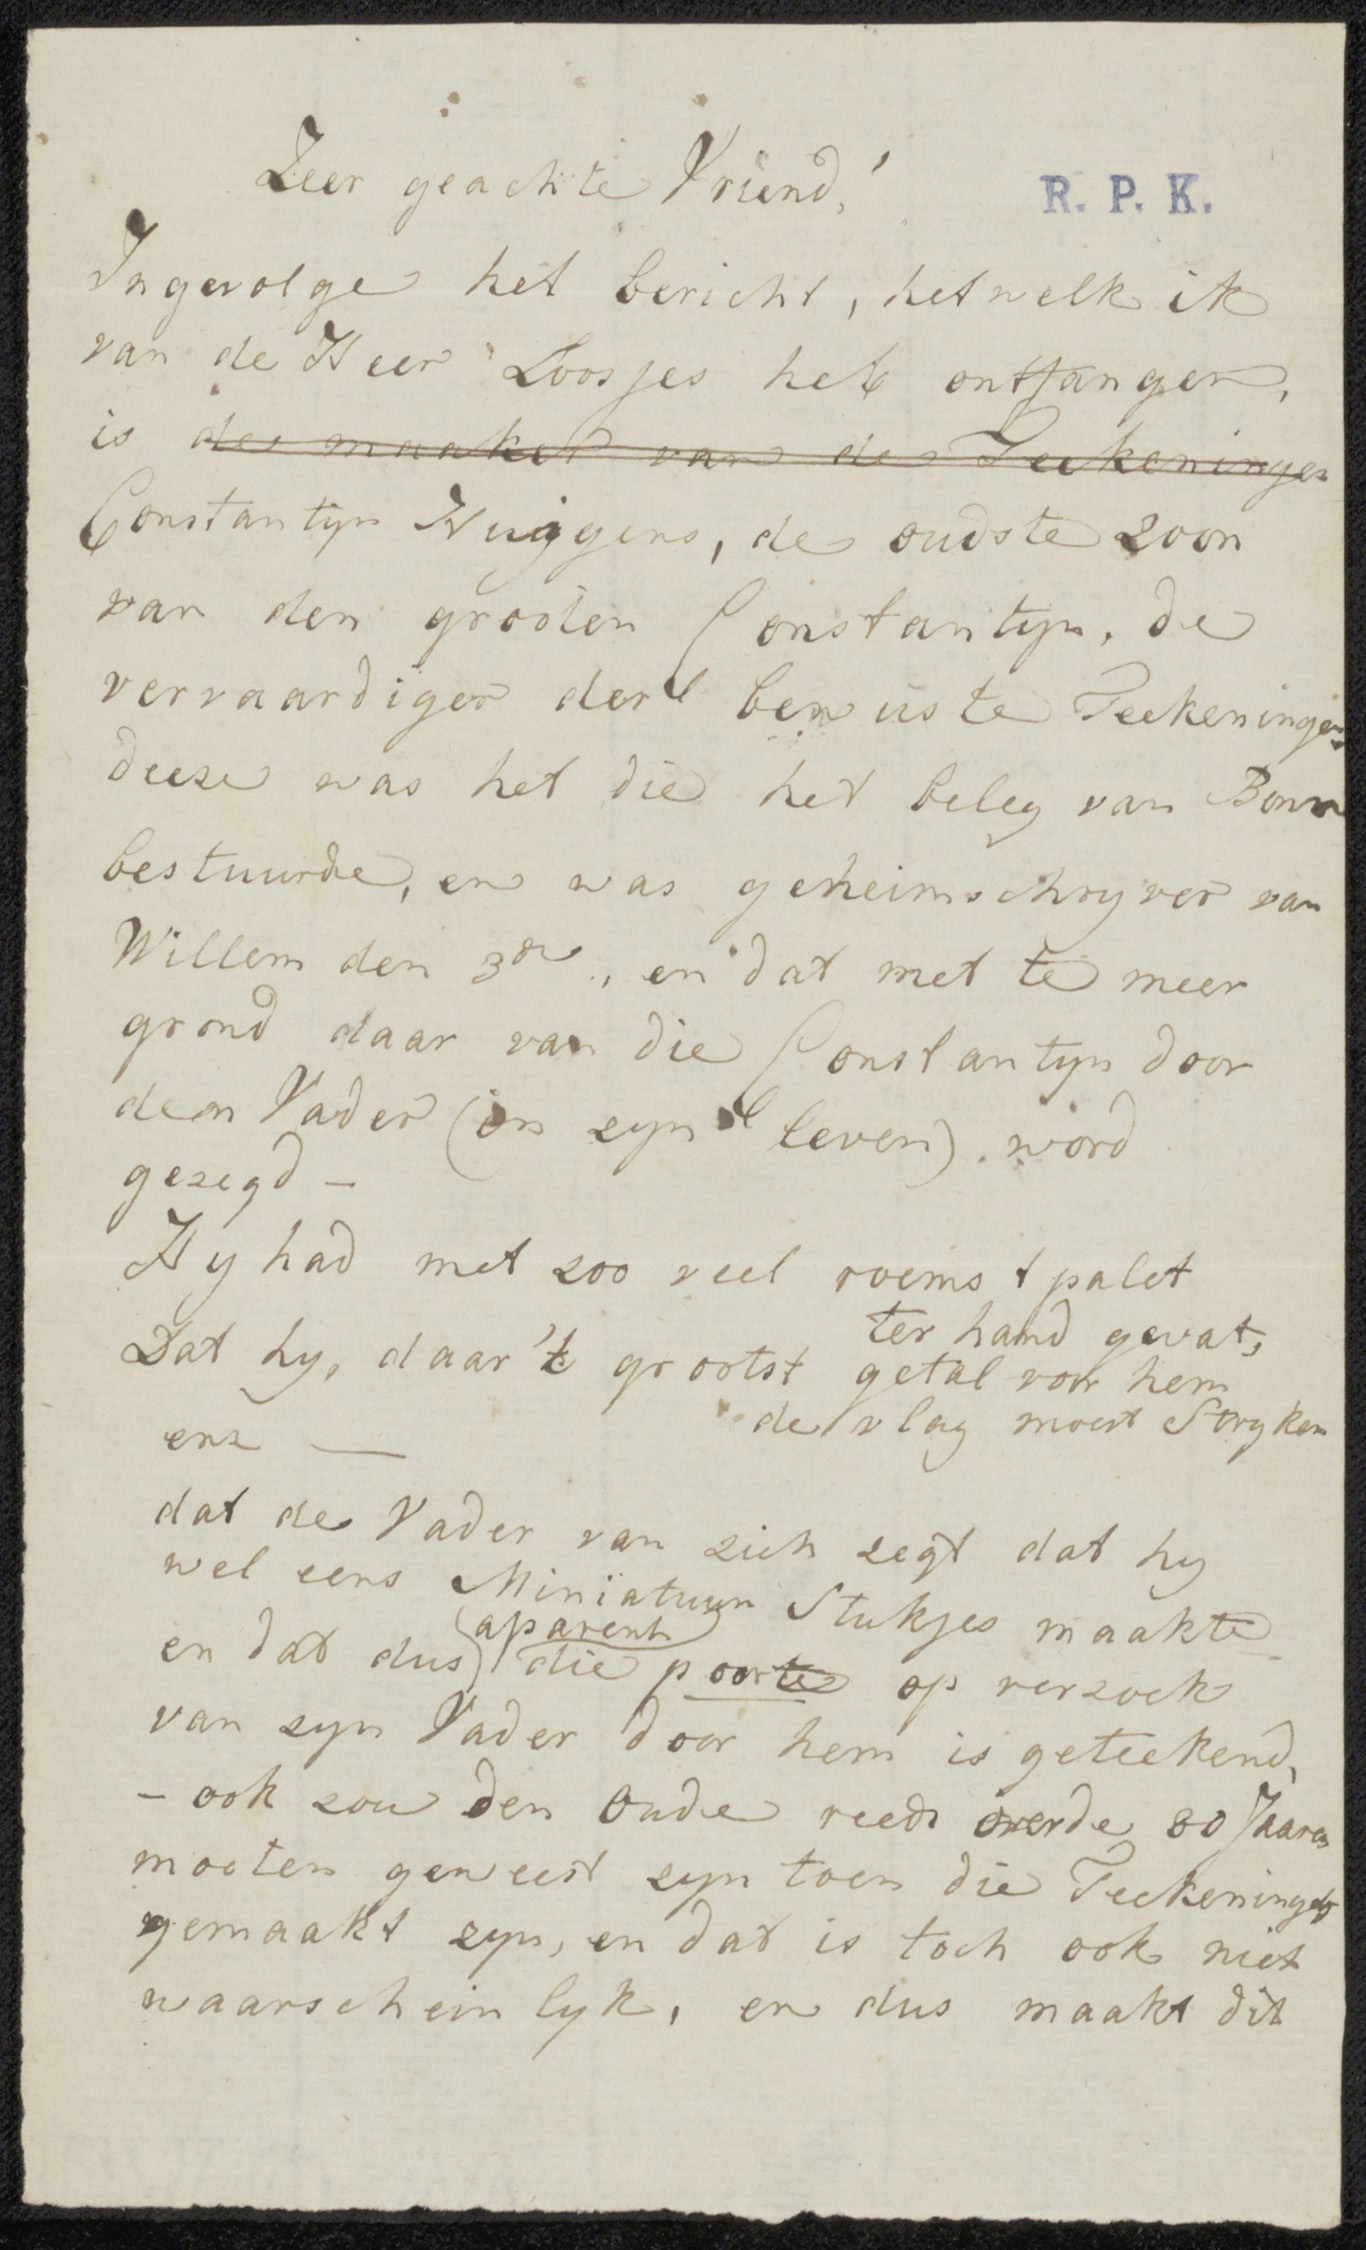 Zeer geachte Vriend!
R. P. K.
Ingevolge het bericht, hetwelk ik
van de Heer Loosjes heb ontfangen,
is de maaker van de Teekeningen
Constantyn Huigens, de oudste zoon
van den grooten Constantyn, de
vervaardiger der bewuste Teekeningen
deeze was het die het beleg van Bonn
bestuurde, en was geheimschryver van
Willem den 3de, en dat met te meer
grond daar van die Constantyn door
den Vader (in zyn leven) word
gezegd —
Hy had met zoo veel roems t palet
ter hand gevat,
Dat hy, daar 't grootst getal voor hem
de vlag moest Stryken
enz —
dat de Vader van zich zegt dat hy
wel eens Miniatuur Stukjes maakte
en dat dus (aparent) die poorte op verzoek
van zyn Vader door hem is geteekend,
– ook zou den Oude reeds over de 80 Jaaren
moeten geweest zyn toen die Teekeningen
gemaakt zyn, en dat is toch ook niet
waarscheinlyk, en dus maakt dit